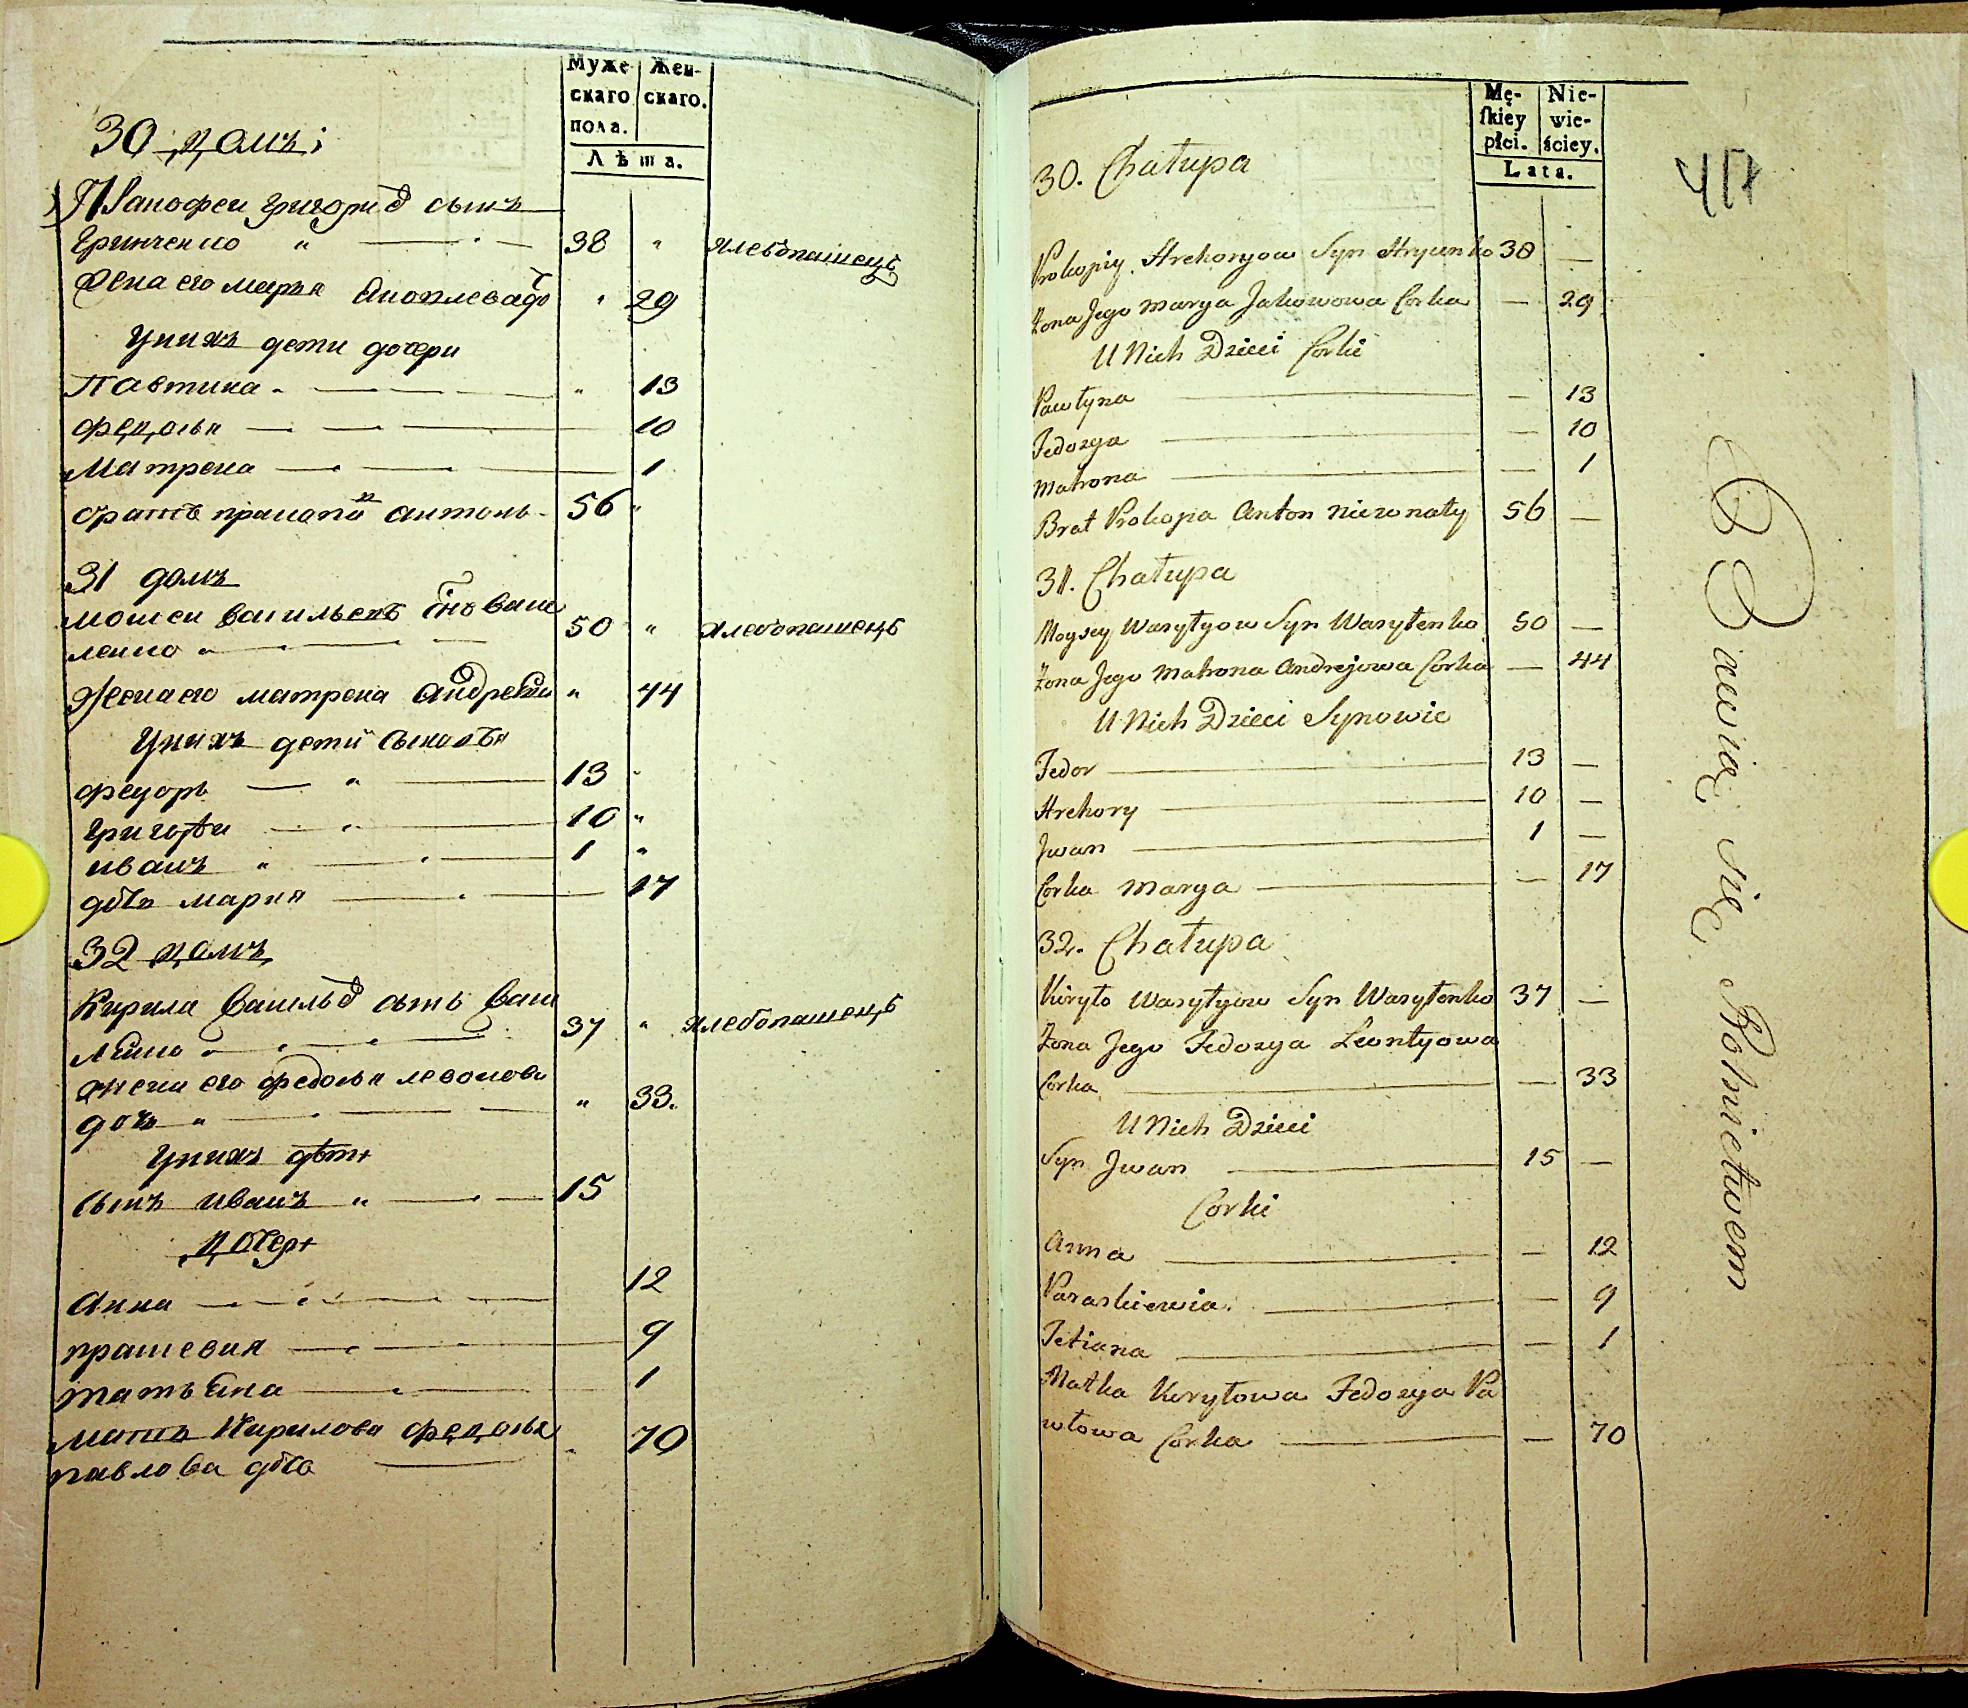 Муже- Жен-
скаго скаго.
пола.
Лѣта.
30 домъ;
григорив сынъ
Гринченко " 38 " хлебопашецъ
Жена его марья " 29
Унихъ дети дочери
Павтина " 13
Федосья 10
Матрена 1
братъ антонъ 56 "
31 домъ
моисеи васильевъ снъ васи
ленко " 50 " хлебопашецъ
Жена его матрена " 44
Унихъ дети сыновья
федоръ " 13 "
григорѣи 10 "
иванъ " 1 "
дочь мария 17
32 домъ
Кирила василье в сынъ васи
ленко " 37 " хлебопашецъ
жена его федосья
дочь " " 33.
Унихъ дѣти
сынъ иванъ " 15
дочери
Анна 12
прасковия 9
татьяна 1
мать Кирилова федосья " 70
павлова дочь
Mę- Nie-
ſkiey wie-
płci. ściey.
Lata.
417
30. Chałupa
Prokopiy Hrehoryow Syn Hrycenko 38 —
Żona Jego Marya Jakowowa Corka — 29
U Nich Dzieci Corki
Pawłyna — 13
Fedozya — 10
Matrona — 1
Brat Prokopia Anton niezonaty 56 —
31. Chałupa
Moysey Wasylyow Syn Wasylenko 50 —
Żona Jego Matrona Andrejowa Corka — 44
U Nich Dzieci Synowie
Fedor 13 —
Hrehory 10 —
Jwan 1 —
Corka Marya — 17
32. Chałupa
Kiryło Wasylyow Syn Wasylenko 37 —
Żona Jego Fedozya Leontyowa
Corka — 33
U Nich Dzieci
Syn Jwan 15 —
Corki
Anna — 12
Paraskiewia. — 9
Tetiana — 1
Matka Kiryłowa Fedozya Pa
włowa Corka — 70
Bawią się Rolnictwem